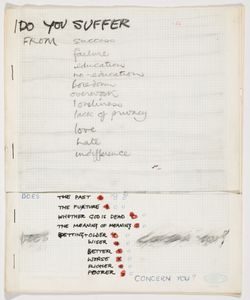 DO YOU SUFFER
FROM success
failure
education
no-education
boredom
overwork
loneliness
lack of privacy
love
hate
indifference
DOES THE PAST
THE FURTURE
WHETHER GOD IS DEAD
THE MEANING OF MEANING
DOES GETTING OLDER
WISER
BETTER
WORSE
RICHER
POORER
CONCERN YOU?